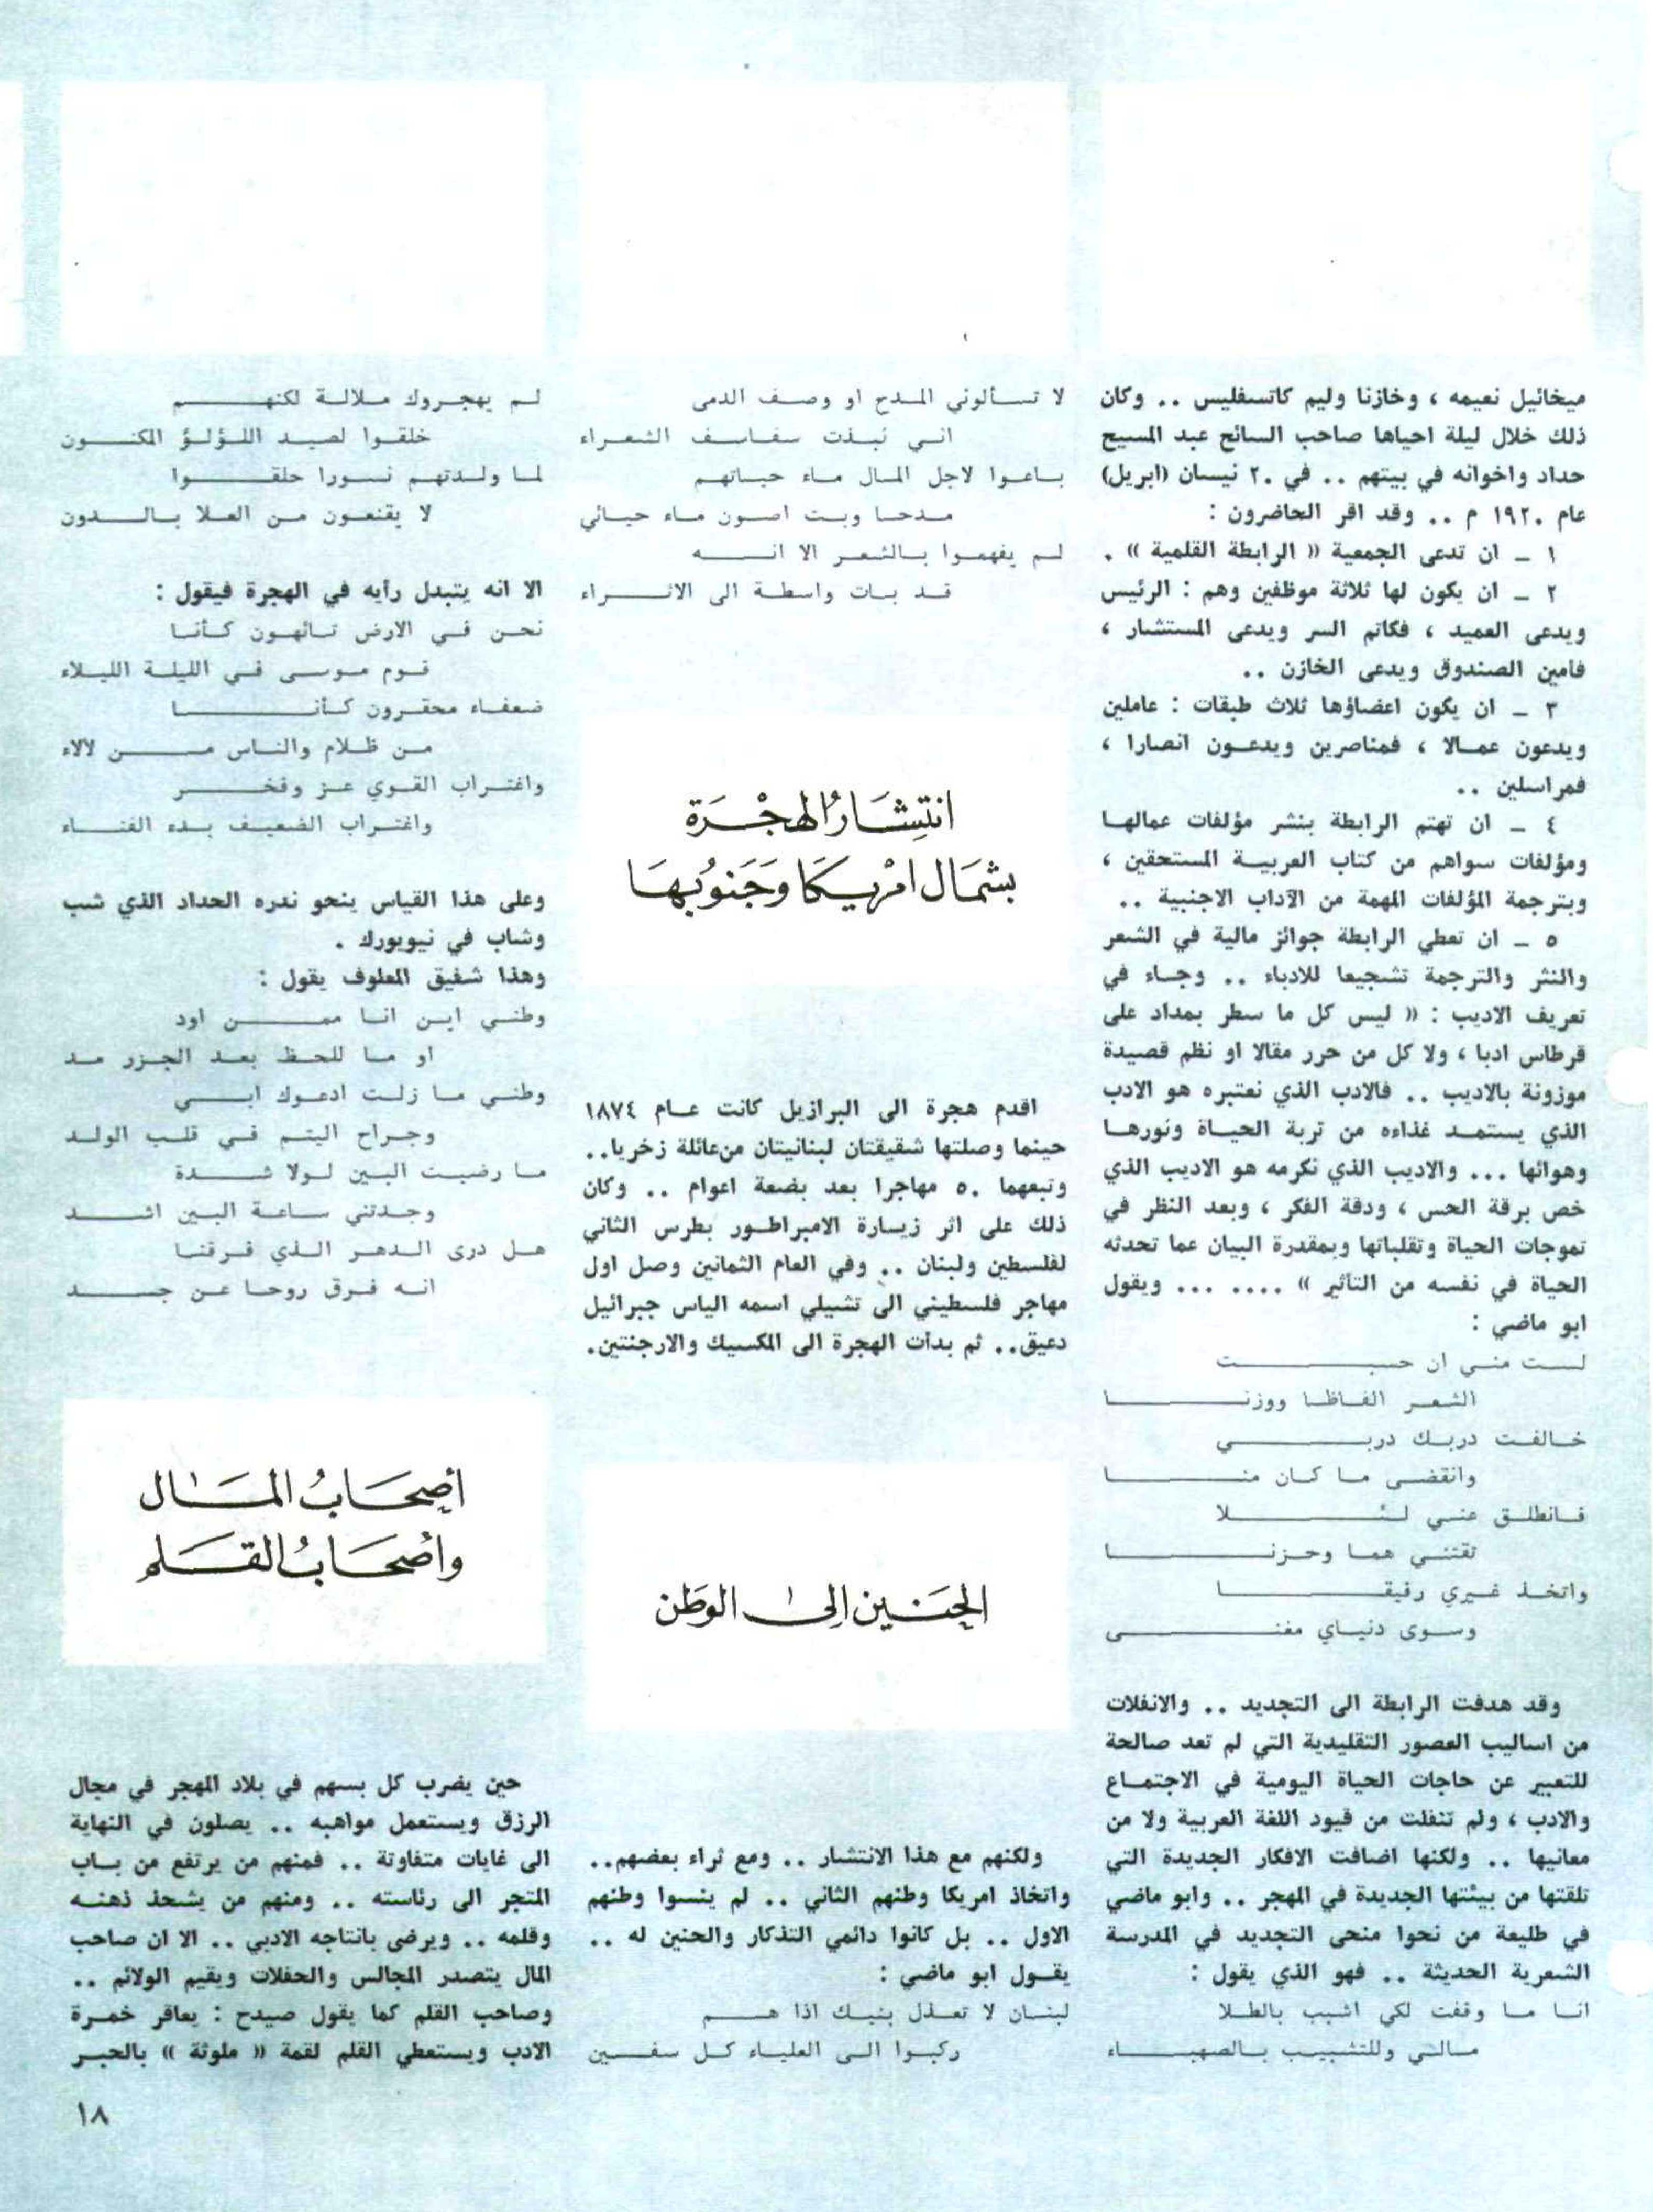 ميخائيل نعيمه ، وخازنا وليم كاتسفليس .. وكان
ذلك خلال ليلة احياها صاحب السائح عبد المسيح
حداد واخوانه في بيتهم .. في ٢٠ نيسان (ابريل)
عام ١٩٢٠ م .. وقد اقر الحاضرون :
١ ـ ان تدعى الجمعية « الرابطة القلمية » .
٢ ـ ان يكون لها ثلاثة موظفين وهم : الرئيس
ويدعى العميد ، فكاتم السر ويدعى المستشار ،
فامين الصندوق ويدعى الخازن ..
٣ ـ ان يكون اعضاؤها ثلاث طبقات : عاملين
ويدعون عمالا ، فمناصرين ويدعون انصارا ،
فمراسلين ..
٤ ـ ان تهتم الرابطة بنشر مؤلفات عمالها
ومؤلفات سواهم من كتاب العربية المستحقين ،
وبترجمة المؤلفات المهمة من الآداب الاجنبية ..
٥ ـ ان تعطي الرابطة جوائز مالية في الشعر
والنثر والترجمة تشجيعا للادباء .. وجاء في
تعريف الاديب : « ليس كل ما سطر بمداد على
قرطاس ادبا ، ولا كل من حرر مقالا او نظم قصيدة
موزونة بالاديب .. فالادب الذي نعتبره هو الادب
الذي يستمد غذاءه من تربة الحياة ونورها
وهوائها ... والاديب الذي نكرمه هو الاديب الذي
خص برقة الحس ، ودقة الفكر ، وبعد النظر في
تموجات الحياة وتقلباتها وبمقدرة البيان عما تحدثه
الحياة في نفسه من التأثير » .... ... ويقول
ابو ماضي :
لست مني ان حسبت
الشعر الفاظا ووزنا
خالفت دربك دربي
وانقضى ما كان منا
فانطلق عني لئلا
تقتني هما وحزنا
واتخذ غيري رفيقا
وسوى دنياي مغنى
وقد هدفت الرابطة الى التجديد .. والانفلات
من اساليب العصور التقليدية التي لم تعد صالحة
للتعبير عن حاجات الحياة اليومية في الاجتماع
والادب ، ولم تنفلت من قيود اللغة العربية ولا من
معانيها .. ولكنها اضافت الافكار الجديدة التي
تلقتها من بيئتها الجديدة في المهجر .. وابو ماضي
في طليعة من نحوا منحى التجديد في المدرسة
الشعرية الحديثة .. فهو الذي يقول :
انا ما وقفت لكي اشبب بالطلا
مالي وللتشبيب بالصهباء
لا تسألوني المدح او وصف الدمى
اني نبذت سفاسف الشعراء
باعوا لاجل المال ماء حياتهم
مدحا وبت اصون ماء حيائي
لم يفهموا بالشعر الا انه
قد بات واسطة الى الاثراء
انتشار الهجرة
بشمال امريكا وجنوبها
اقدم هجرة الى البرازيل كانت عام ١٨٧٤
حينما وصلتها شقيقتان لبنانيتان من عائلة زخريا..
وتبعهما ٥٠ مهاجرا بعد بضعة اعوام .. وكان
ذلك على اثر زيارة الامبراطور بطرس الثاني
لفلسطين ولبنان .. وفي العام الثمانين وصل اول
مهاجر فلسطيني الى تشيلي اسمه الياس جبرائيل
دعيق.. ثم بدأت الهجرة الى المكسيك والارجنتين.
الحنين إلى الوطن
ولكنهم مع هذا الانتشار .. ومع ثراء بعضهم..
واتخاذ امريكا وطنهم الثاني .. لم ينسوا وطنهم
الاول .. بل كانوا دائمي التذكار والحنين له ..
يقول ابو ماضي :
لبنان لا تعذل بنيك اذا هم
ركبوا الى العلياء كل سفين
لم يهجروك ملالة لكنهم
خلقوا لصيد اللؤلؤ المكنون
لما ولدتهم نسورا حلقوا
لا يقنعون من العلا بالدون
الا انه يتبدل رأيه في الهجرة فيقول :
نحن في الارض تائهون كأنا
قوم موسى في الليلة الليلاء
ضعفاء محقرون كأنا
من ظلام والناس من لالاء
واغتراب القوي عز وفخر
واغتراب الضعيف بدء الفناء
وعلى هذا القياس ينحو ندره الحداد الذي شب
وشاب في نيويورك .
وهذا شفيق المعلوف يقول :
وطني اين انا ممن اود
او ما للحظ بعد الجزر مد
وطني ما زلت ادعوك ابي
وجراح اليتم في قلب الولد
ما رضيت البين لولا شدة
وجدتني ساعة البين اشد
هل درى الدهر الذي فرقنا
انه فرق روحا عن جسد
أصحاب المال
وأصحاب القلم
حين يضرب كل بسهم في بلاد المهجر في مجال
الرزق ويستعمل مواهبه .. يصلون في النهاية
الى غايات متفاوتة .. فمنهم من يرتفع من باب
المتجر الى رئاسته .. ومنهم من يشحذ ذهنه
وقلمه .. ويرضى بانتاجه الادبي .. الا ان صاحب
المال يتصدر المجالس والحفلات ويقيم الولائم ..
وصاحب القلم كما يقول صيدح : يعاقر خمرة
الادب ويستعطي القلم لقمة « ملوثة » بالحبر
١٨